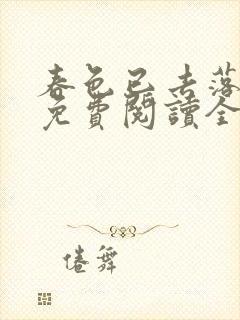 春色已去落
免費閱讀全
倦舞